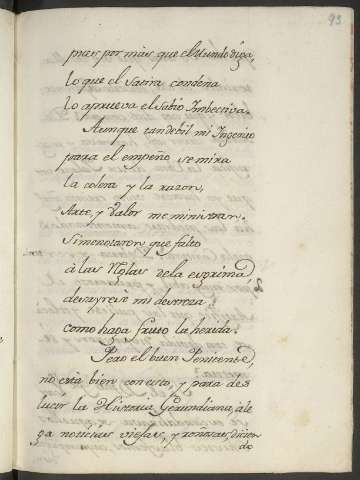 93
pues por mas que el Mundo diga,
lo que el Satira condeña
lo aprueva el Sabio Imbectiva.
Aunque tan debil mi Ingenio
para el empeño se mira
la colera y la razon,
Arte, y Valor me ministran.
Si me notaron que falto
à las Reglas de la esgrima,
desayrese mi destreza
como haga fruto la herida.
Pero el buen Penitente,
no està bien con esto, y para des
lucir la Historia Gerundiana, ale
ga noticias viejas, y roñosas, dicien
do